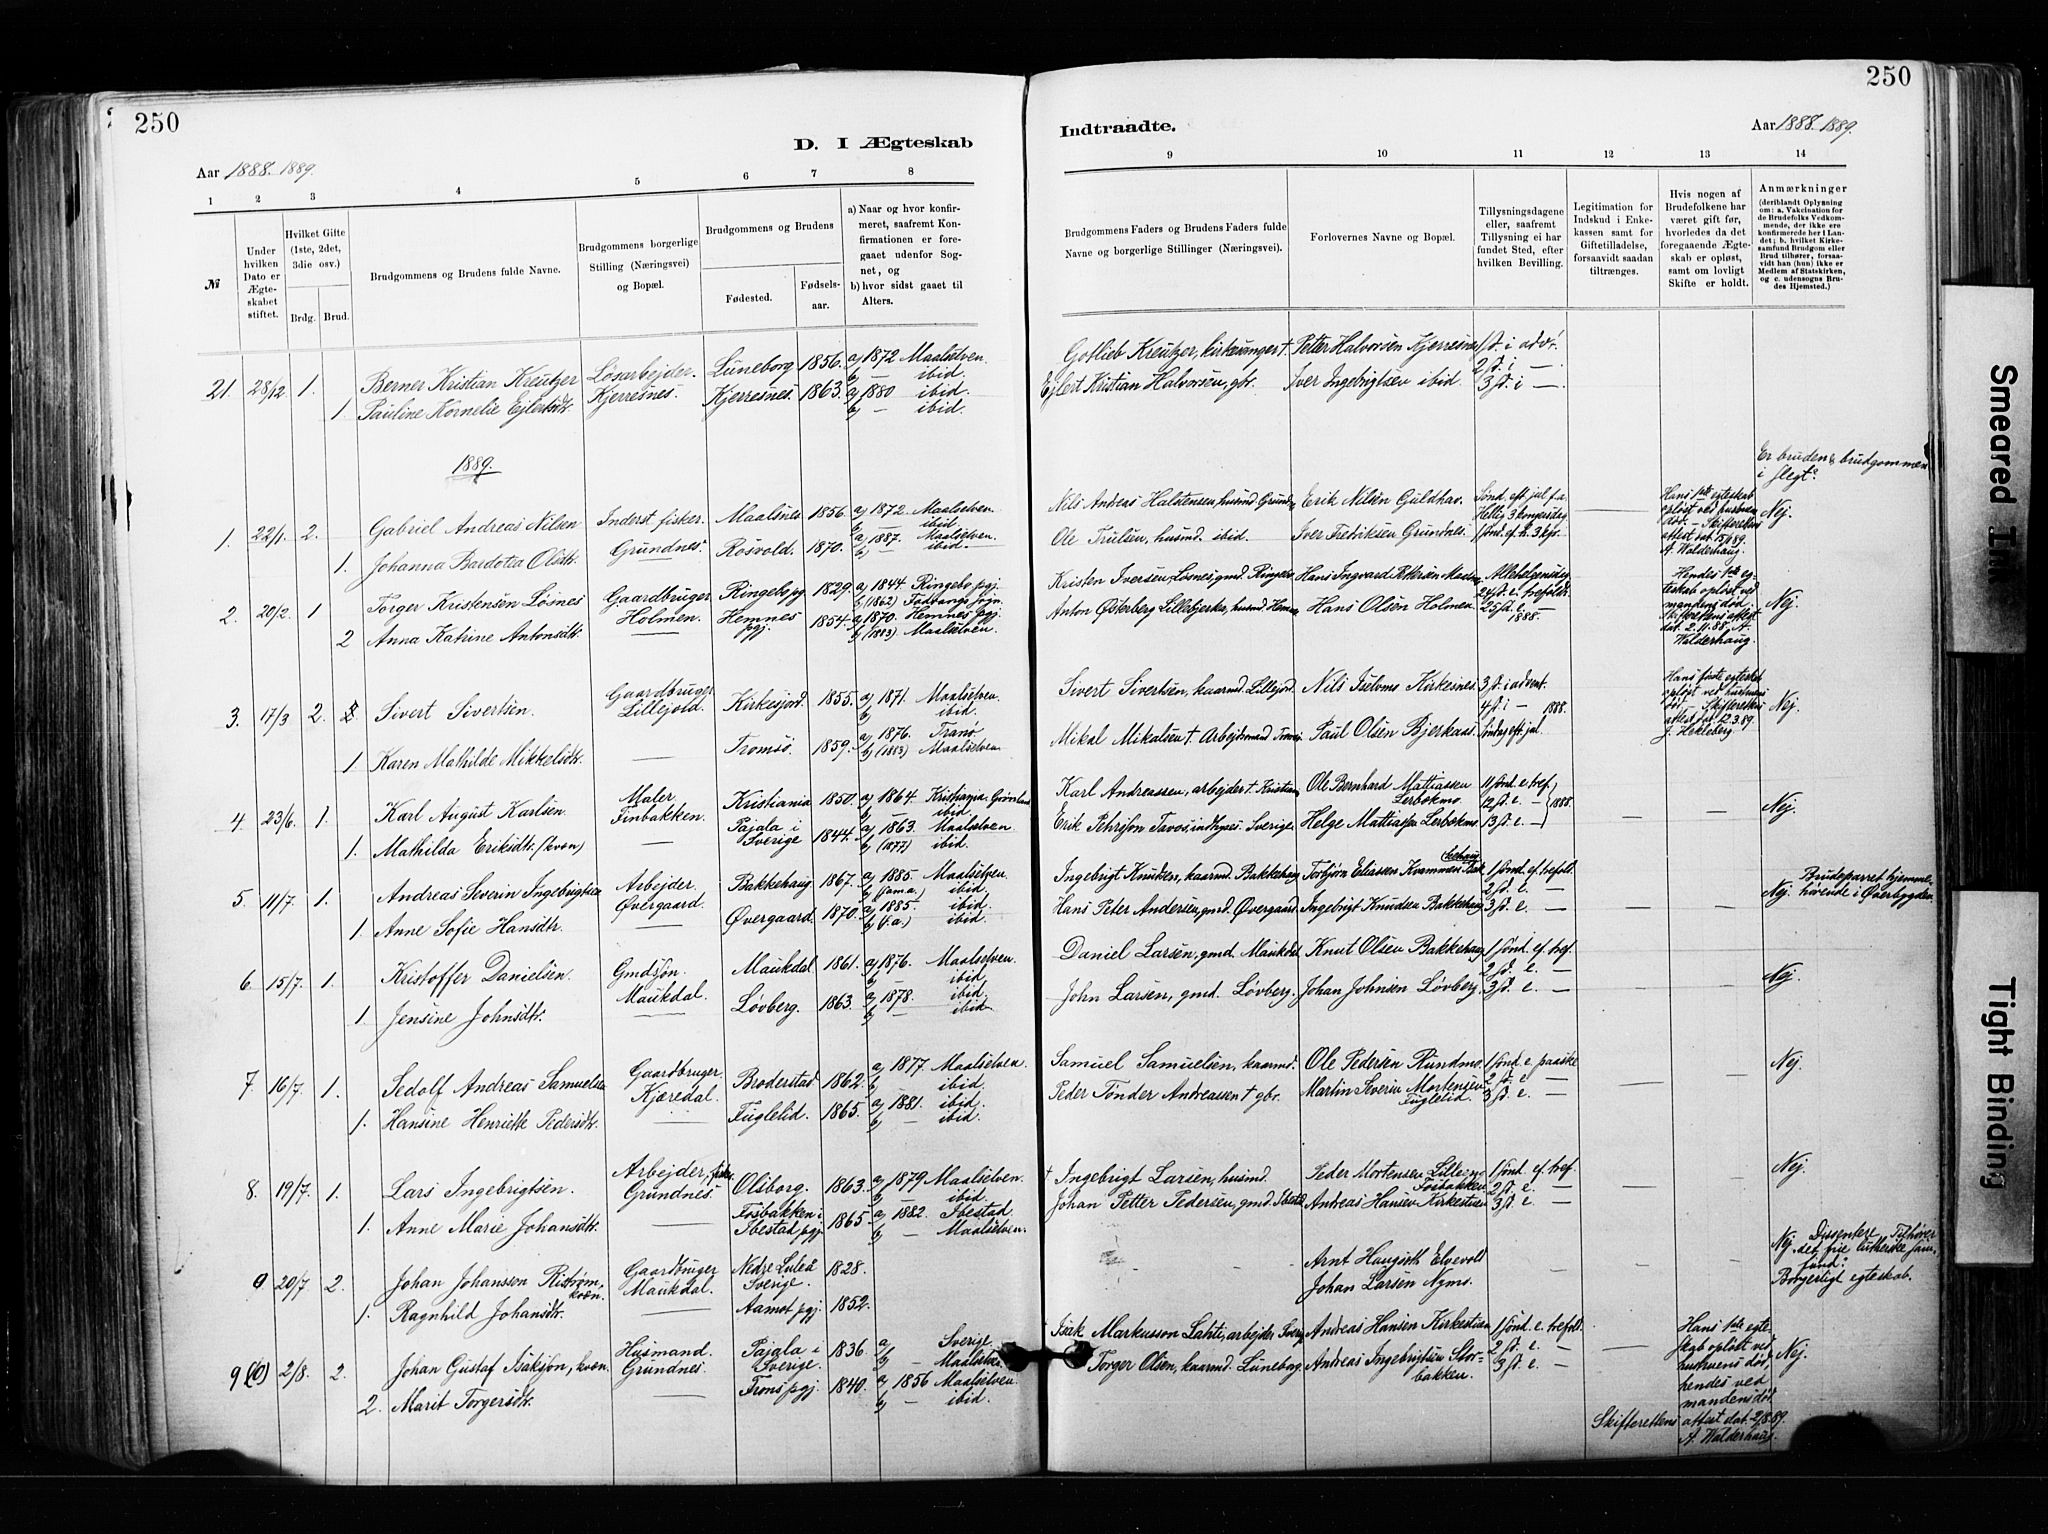 250
D. I Ægteskab
Aar 1888-1889.
1 2 3 4 5 6 7 8
№
Under hvilken Dato er Ægteskabet stiftet.
Hvilket Gifte (1ste, 2det, 3die osv.)
Brdg. Brud.
Brudgommens og Brudens fulde Navne.
Brudgommens borgerlige Stilling (Næringsvei) og Bopæl.
Brudgommens og Brudens
Fødested.
Fødselsaar.
a) Naar og hvor konfirmeret, saafremt Konfirmationen er foregaaet udenfor Sognet, og
b) hvor sidst gaaet til Alters.
21. 28/12 1. Berner Kristian Kreutzer Løsarbejder. Luneborg 1856. a) 1872 Maalselven.
b) — ibid.
1 Pauline Kornelie Ejlertsdtr. Kjerresnes. Kjerresnes. 1863. a) 1880 ibid.
b) — ibid.
1889.
1. 22/1. 2. Gabriel Andreas Nilsen Inderst fisker. Maalsnes 1856. a) 1872. Maalselven.
b) — ibid.
1. Johanna Bardotea Olsdtr. Grundnes. Rosvold. 1870. a) 1887. Maalselven.
b) — ibid.
2. 20/2. 1 Torger Kristensen Løsnes Gaardbruger Ringebo pgj. 1829. a) 1844 Ringebo pgj.
b) (1862)
2 Anna Katrine Antonsdtr. Holmen. Hemnes pgj. 1854. a) 1870. Hemnes pgj.
b) (1883) Maalselven.
3. 17/3 2. Sivert Sivertsen. Gaardbruger Lillejord. Kirkesjord. 1855. a) 1871. Maalselven.
b) ibid.
1 Karen Mathilde Mikkelsdtr. — Tromsø. 1859. a) 1876. Tranø
b) (1883) Maalselven
4. 23/6. 1. Karl August Karlsen. Maler Finbakken. Kristiania 1850. a) 1864. Kristiania Grønland
b) — Maalselven
1. Mathilda Eriksdtr. (kvæn) — Pajala i Sverige 1844. a) 1863.
b) (1877) ibid.
5. 11/7. 1. Andreas Severin Ingebrigtsen Arbejder Øvergaard. Bakkehaug. 1867. a) 1885. Maalselven.
b) (s.a.) ibid.
1. Anne Sofie Hansdtr. — Øvergaard. 1870. a) 1885 ibid.
b) (s.a.) ibid.
6. 15/7. 1. Kristoffer Danielsen. Gmdsøn. Maukdal. Maukdal 1861. a) 1876. Maalselven.
b) — ibid.
1. Jensine Johnsdtr. — Løvberg. 1863. a) 1878. ibid.
b) — ibid.
7. 16/7. 1. Sedolf Andreas Samuelsen Gaardbruger Kjæredal. Broderstad 1862. a) 1877. Maalselven.
b) — ibid.
1. Hansine Henriette Pedersdtr. — Fuglelid. 1865. a) 1881. ibid.
b) — ibid.
8. 19/7. 1. Lars Ingebrigtsen. Arbejder, fisker Grundnes. Olsborg. 1863. a) 1879 Maalselven.
b) — ibid.
1. Anne Marie Johansdtr. — Fosbakken i Ibestad pgj. 1865 a) 1882. Ibestad
b) — Maalselven.
9 20/7. 2. Johan Johansen Riström kvæn. Gaardbruger Maukdal. Nedre Luleå Sverige. 1828.
1. Ragnhild Johansdtr. — Aamot pgj. 1852.
9 (10) 2/8. 2. Johan Gustaf Isaksson, kvæn. Husmand. Grundnes. Pajala i Sverige. 1836. a) Sverige
b) — Maalselven.
2. Marit Torgersdtr. — Trons pgj. 1840. a) 1856 Maalselven.
b) — ibid.
250
Indtraadte.
Aar 1888-1889.
9 10 11 12 13 14
Brudgommens Faders og Brudens Faders fulde Navne og borgerlige Stillinger (Næringsvei).
Forlovernes Navne og Bopæl.
Tillysningsdagene eller, saafremt Tillysning ei har fundet Sted, efter hvilken Bevilling.
Legitimation for Indskud i Enkekassen samt for Giftetilladelse, forsaavidt saadan tiltrænges.
Hvis nogen af Brudefolkene har været gift før, hvorledes da det foregaaende Ægteskab er opløst, samt om lovligt Skifte er holdt.
Anmærkninger (deriblandt Oplysning om: a, Vakcination for de Brudefolks Vedkommende, der ikke ere konfirmerede her i Landet; b, hvilket Kirkesamfund Brudgom eller Brud tilhører, forsaavidt han (hun) ikke er Medlem af Statskirken, og c. udensogns Brudes Hjemsted.)
Gotlieb Kreutzer, kirkesanger †. Petter Halvorsen Kjerresnes 1 sd. i adv.
2 sd. i —
Ejlert Kristian Halvorsen, gbr. Iver Ingebrigtsen ibid. 3 sd. i —
Er bruden & brudgommen i slegt?
Nils Andreas Halstensen, husmd Grundnes Erik Nilsen Guldhav. Sønd. eft. jul f.a. Hellig 3 kongersdag — Hans 1ste egteskab opløst ved hustruens død. — Skifterettens attest dat. 15/1 89. A. Walderhaug. Nej.
Ole Trulsen, husmd. ibid. Iver Fredriksen Grundnes. 1 sønd. ef. h. 3 kgr.
Kristen Iversen Løsnes, gmd. Ringebo Hans Ingvard Pettersen Allehelgensdag 24 sd. e. trefoldt. Hendes 1ste egteskab opløst ved mandens død. Skifterettens attest dat. 2.11.88. A. Walderhaug. Nej.
Anton Østerberg Lillebjerka, husmd Hemnes Hans Olsen Holmen 25 sd. e. — 1888.
Sivert Sivertsen, kaarmd. Lillejord. Nils Iselvmo Kirkesnes. 3 sd. i advent. Hans første egteskab opløst ved hustruens død — Skifterettens attest dat. 12.3.89. J. Hekleberg. Nej.
4 sd. i — 1888.
Mikal Mikalsen †. Arbejdsmand Tromsø Paul Olsen Bjerkaas. Søndag eft. jul.
Karl Andreassen, arbejder † Kristiania Ole Bernhard Mattiassen Lerbekmo. 11 sønd. e. tref. Nej.
12 sd. e. — 1888.
Erik Pehrsson Tavos, indhyses. Sverige. Helge Mattiassen Lerbekmo. 13 sd. e. —
Ingebrigt Knudsen, kaarmd. Bakkehaug Torbjørn Eliassen Kvammen Bakkehaug 1 sønd. ef. trefolt.
2 sd. e. — Nej. Brudeparret hjemmehørende i Øverbygden.
Hans Peter Andersen, gmd. Øvergaard. Ingebrigt Knudsen Bakkehaug 3 sd. e. —
Daniel Larsen, gmd. Maukdal Knut Olsen Bakkehaug 1 sønd. ef. tref.
2 sd. e. — Nej.
John Larsen, gmd. Løvberg. Johan Johnsen Løvberg. 3 sd. e. —
Samuel Samuelsen, kaarmd. Ole Pedersen Rundmo. 1 sønd. e. paaske Nej.
2 sd. e. —
Peder Tønder Andreassen † gbr. Martin Severin Mortensen Fuglelid. 3 sd. e. —
† Ingebrigt Larsen, husmd. Peder Mortensen Lillemo Fosbakken 1 sønd. ef. tref. Nej.
2 sd. e. —
Johan Petter Pedersen, gmd Ibestad Andreas Hansen Kirkestuen 3 sd. e. —
— Arnt Haugseth Elvevold Nej. Dissentere. Tilhører det frie lutherske samfund? Borgerligt egteskab.
Johan Larsen Nymo.
Isak Markusson Lahti, arbejder Sverige Andreas Hansen Kirkestuen 1 sønd. e. trefolt.
2 sd. e. — Hans 1ste egteskab opløst ved hustruens død, hendes ved mandens død. Nej.
Torger Olsen, kaarmd. Luneborg. Andreas Ingebrigtsen Storbakken. 3 sd. e. —
Skifterettens attest dat. 2/8.89. A. Walderhaug.
Smeared Ink
Tight Binding